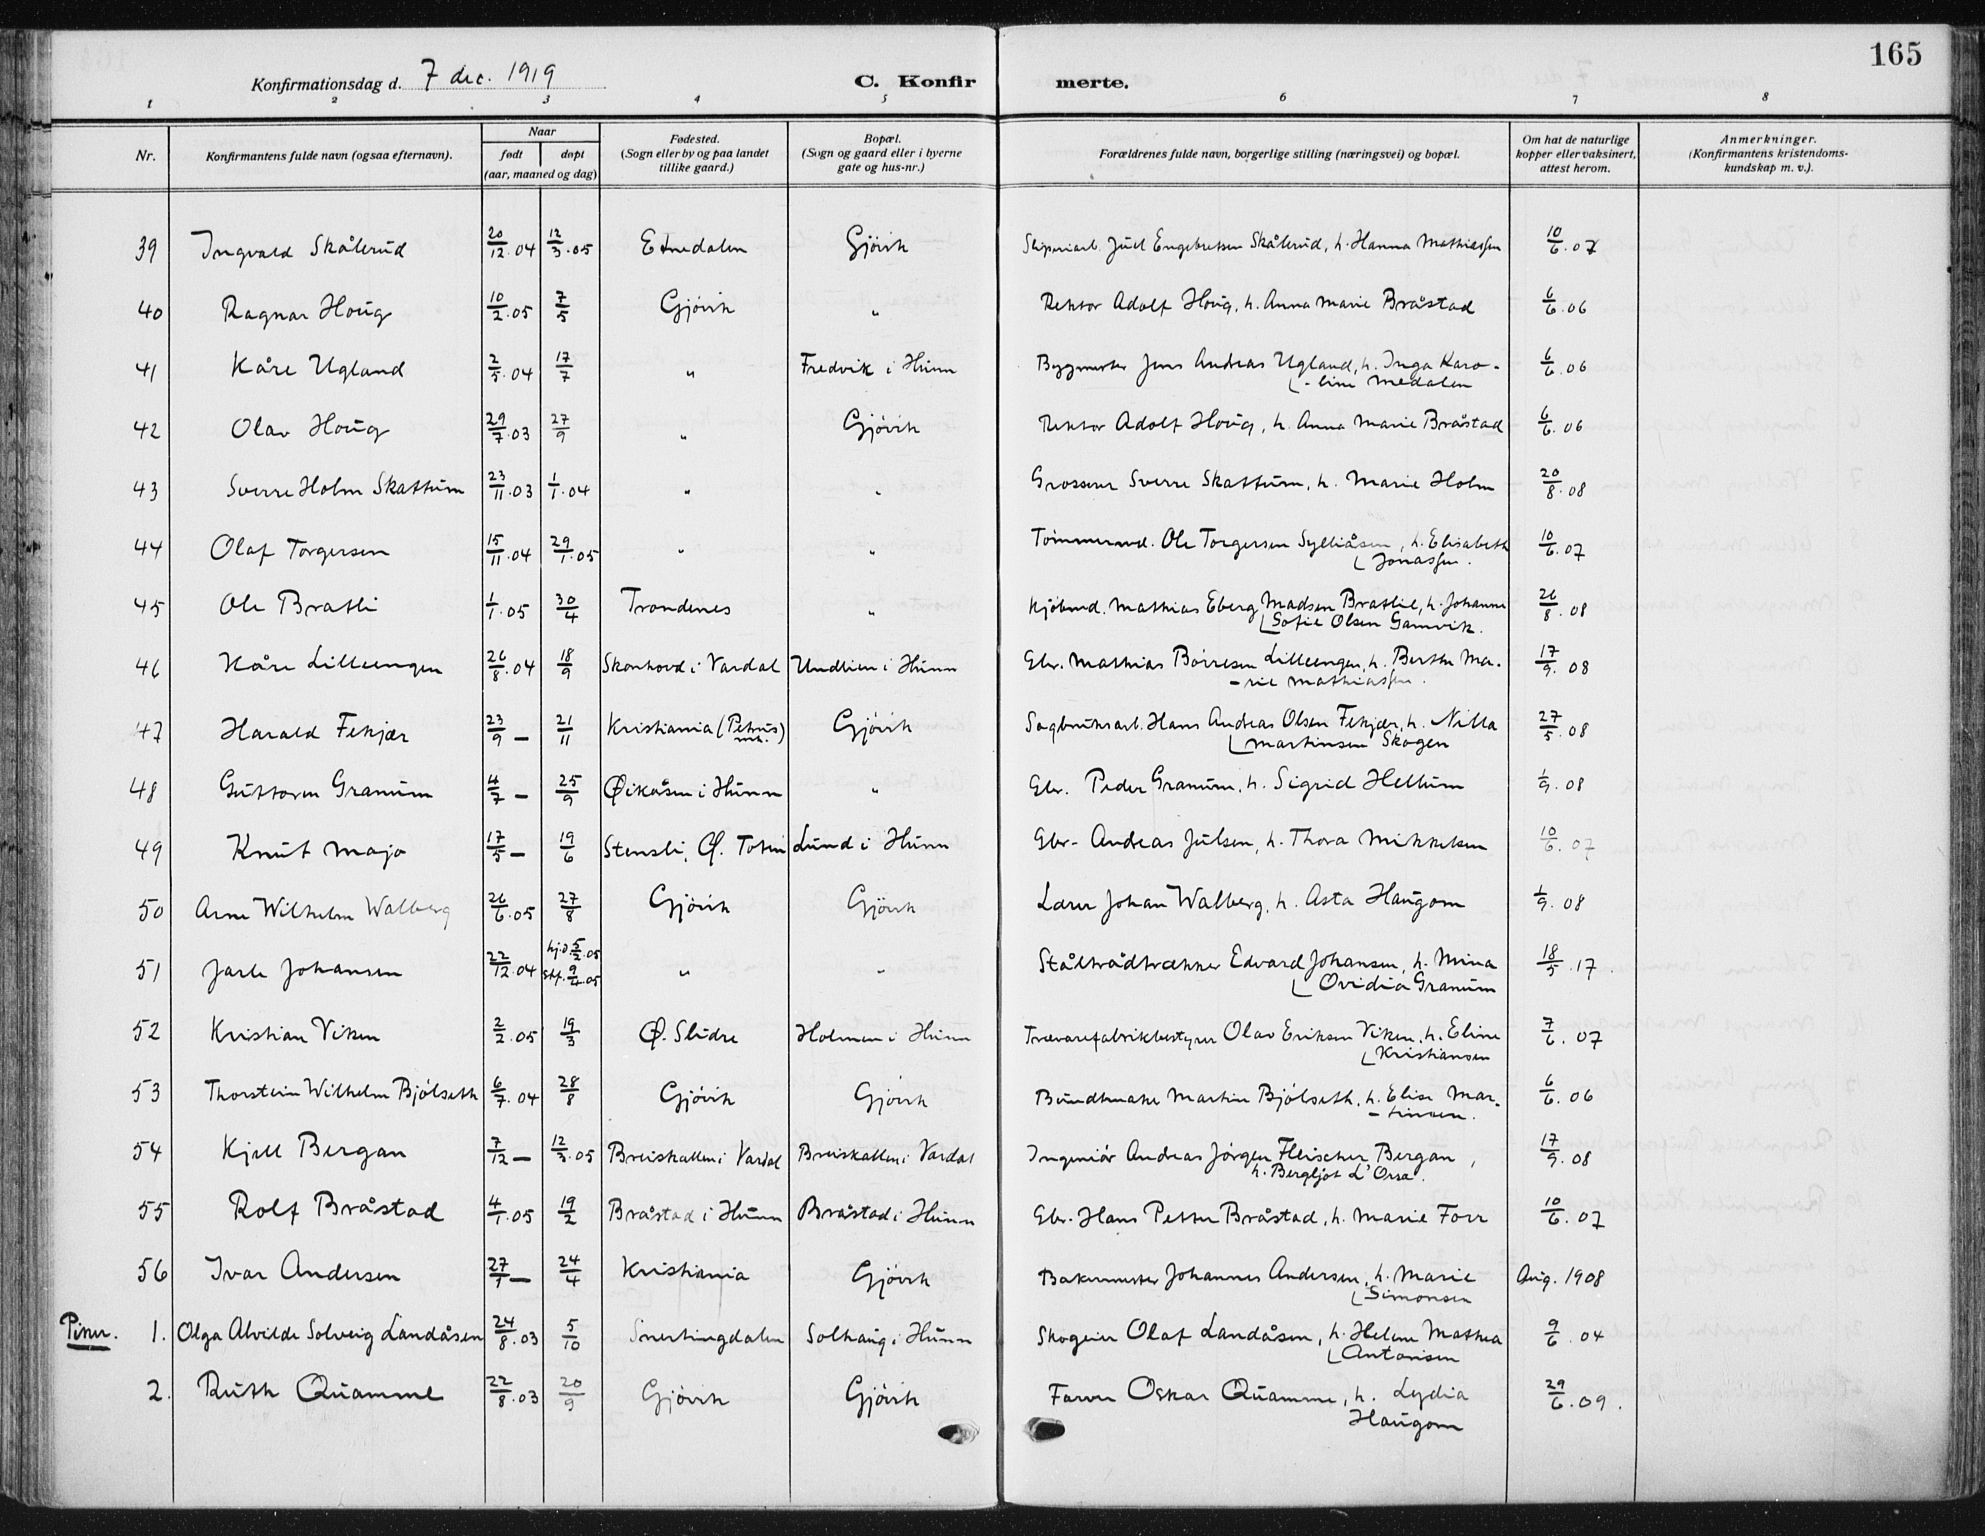 165
Konfirmationsdag d. 7 dec. 1919 C. Konfirmerte.
1 2 3 4 5 6 7 8
Nr. Konfirmantens fulde navn (ogsaa efternavn). Naar født døpt (aar, maaned og dag) Fødested. (Sogn eller by og paa landet tillike gaard.) Bopæl. (Sogn og gaard eller i byerne gate og hus-nr.) Forældrenes fulde navn, borgerlige stilling (næringsvei) og bopæl. Om hat de naturlige kopper eller vaksinert, attest herom. Anmerkninger. (Konfirmantens kristendoms-kundskap m. v.).
39 Ingvald Skålerud 20/12.04 12/3.05 Etnedalen Gjövik Sliperiarb. Juel Engebretsen Skålerud, h. Hanna Mathiassen 10/6.07
40 Ragnar Houg 10/2.05 7/5 Gjövik " Rektor Adolf Houg, h. Anna Marie Bråstad 6/6.06
41 Kåre Ugland 2/5.04 17/7 " Fredvik i Hunn Byggmester Jens Andreas Ugland, h. Inga Karo-
-line Medalen 6/6.06
42 Olav Houg 29/7.03 27/9 " Gjövik Rektor Adolf Houg, h. Anna Marie Bråstad 6/6.06
43 Sverre Holm Skattum 23/11.03 1/1.04 " " Grosserer Sverre Skattum, h. Marie Holm 20/8.08
44 Olaf Torgersen 15/11.04 29/1.05 " " Tömmermd. Ole Torgersen Sylliåsen, h. Elisabeth
Jonassen. 10/6.07
45 Ole Bratli 1/1.05 30/4 Trondenes " Kjöbmd. Mathias Eberg Madsen Bratlie, h. Johanne
Sofie Olsen Gamvik. 26/8.08
46 Kåre Lilleengen 26/8.04 18/9 Skonhovd i Vardal Undlien i Hunn Gbr. Mathias Börresen Lilleengen, h. Berthe Ma-
-rie Mathiassen. 17/9.08
47 Harald Fekjær 23/9 — 21/11 Kristiania (Petrus mk.) Gjövik Sagbruksarb. Hans Andreas Olsen Fekjær, h. Nilla
Martinsen Skogen 27/5.08
48 Guttorm Granum 4/7 — 25/9 Øikåsen i Hunn " Gbr. Peder Granum, h. Sigrid Hellum 1/9.08
49 Knut Majo 17/5 — 19/6 Stensli, Ø. Toten Lund i Hunn Gbr. Andreas Julsen, h. Thora Mikkelsen 10/6.07
50 Arne Wilhelm Walberg 26/6.05 27/8 Gjövik Gjövik Lærer Johan Walberg, h. Asta Haugom 1/9.08
51 Jarle Johansen 22/12.04 hj.d. 5/2.05 Stf. 9/4.05 " " Ståltrådtrækker Edvard Johansen, h. Mina
Ovidia Granum 18/5.17.
52 Kristian Viken 2/2.05 19/3 Ø. Slidre Holmen i Hunn Trævarefabrikbestyrer Olav Eriksen Viken, h. Eline
Kristiansen 7/6.07
53 Thorstein Wilhelm Bjölseth 6/7.04 28/8 Gjövik Gjövik Bundtmaker Martin Bjölseth, h. Elise Mar-
-tinsen. 6/6.06
54 Kjell Bergan 7/12 — 12/3.05 Breiskallen i Vardal Breiskallen i Vardal Ingeniör Andreas Jörgen Fleischer Bergan,
h. Bergljot L'Orsa. 17/9.08
55 Rolf Bråstad 4/1.05 19/2 Bråstad i Hunn Bråstad i Hunn Gbr. Hans Petter Bråstad, h. Marie Forr 10/6.07
56 Ivar Andersen 27/1 — 24/4 Kristiania Gjövik Bakermester Johannes Andersen, h. Marie
Simonsen Aug. 1908
Piker. 1. Olga Alvilde Solveig Landåsen 24/8.03 5/10 Snertingdalen Solhaug i Hunn Skogeier Olaf Landåsen, h. Helene Mathea
Antonsen 9/6.04
2. Ruth Quamme 22/8.03 20/9 Gjövik Gjövik Farver Oskar Quamme, h. Lydia
Haugom 29/6.09.